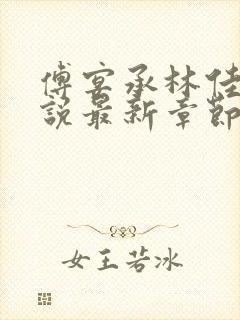 傅宴承林佳
說最新章節
女王若冰